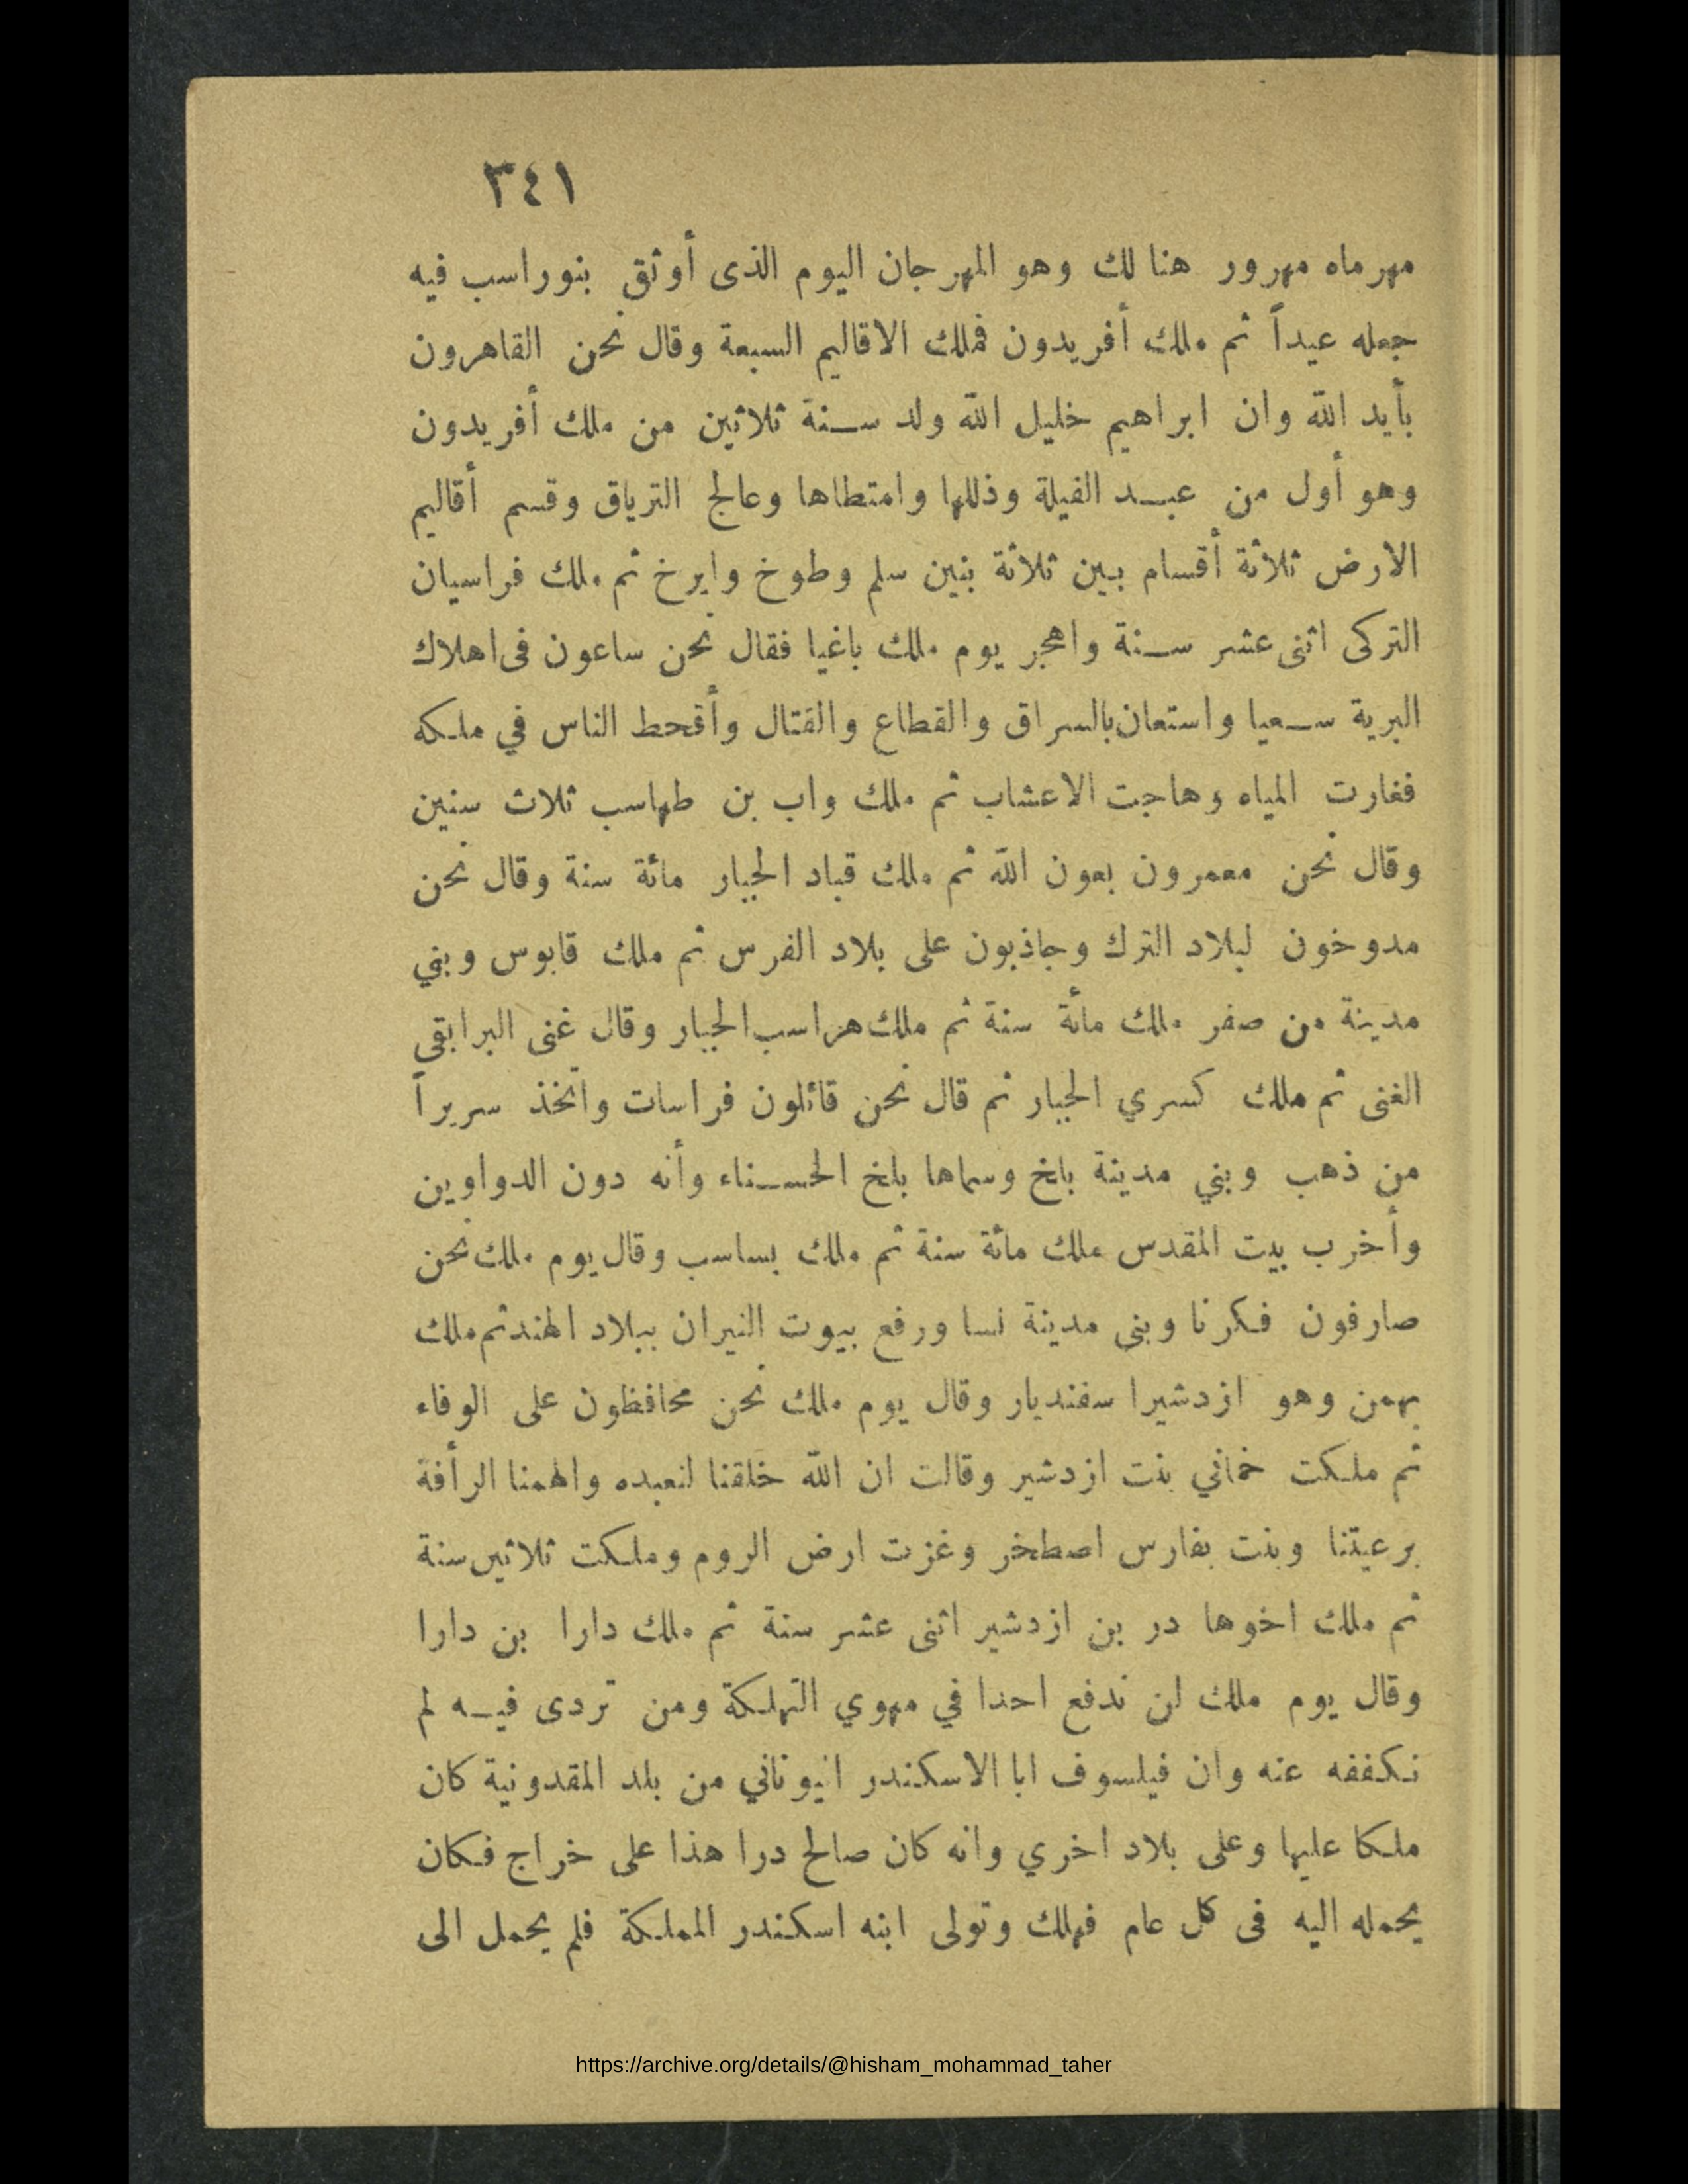 ٣٤١
مهرماه مهرور هنا لك وهو المهرجان اليوم الذى أوثق بنوراسب فيه
جعله عيداً ثم ملك أفريدون فملك الاقاليم السبعة وقال نحن القاهرون
بأيد الله وان ابراهيم خليل الله ولد سنة ثلاثين من ملك أفريدون
وهو أول من عبد الفيلة وذللها وامتطاها وعالج الترياق وقسم أقاليم
الارض ثلاثة أقسام بين ثلاثة بنين سلم وطوخ وايرخ ثم ملك فراسيان
التركى اثنى عشر سنة واهجر يوم ملك باغيا فقال نحن ساعون فى اهلاك
البرية سعيا واستعان بالسراق والقطاع والقتال وأقحط الناس في ملكه
فغارت المياه وهاجت الاعشاب ثم ملك واب بن طهاسب ثلاث سنين
وقال نحن معمرون بعون الله ثم ملك قباد الجبار مائة سنة وقال نحن
مدوخون لبلاد الترك وجاذبون على بلاد الفرس ثم ملك قابوس وبني
مدينة من صفر ملك مائة سنة ثم ملك هراسب الجبار وقال غنى البرابقى
الغنى ثم ملك كسري الجبار ثم قال نحن قائلون فراسات واتخذ سريراً
من ذهب وبني مدينة بلخ وسماها بلخ الحسناء وأنه دون الدواوين
وأخرب بيت المقدس ملك مائة سنة ثم ملك بساسب وقال يوم ملك نحن
صارفون فكرنا وبنى مدينة نسا ورفع بيوت النيران ببلاد الهند ثم ملك
بهمن وهو ازدشيرا سفنديار وقال يوم ملك نحن محافظون على الوفاء
ثم ملكت خماني بنت ازدشير وقالت ان الله خلقنا لنعبده والهمنا الرأفة
برعيتنا وبنت بفارس اصطخر وغزت ارض الروم وملكت ثلاثين سنة
ثم ملك اخوها در بن ازدشير اثنى عشر سنة ثم ملك دارا بن دارا
وقال يوم ملك لن ندفع احدا في مهوي التهلكة ومن تردى فيه لم
نكففه عنه وان فيلسوف ابا الاسكندر انيوناني من بلد المقدونية كان
ملكا عليها وعلى بلاد اخري وانه كان صالح درا هذا على خراج فكان
يحمله اليه فى كل عام فهلك وتولى ابنه اسكندر المملكة فلم يحمل الى
https://archive.org/details/@hisham_mohammad_taher